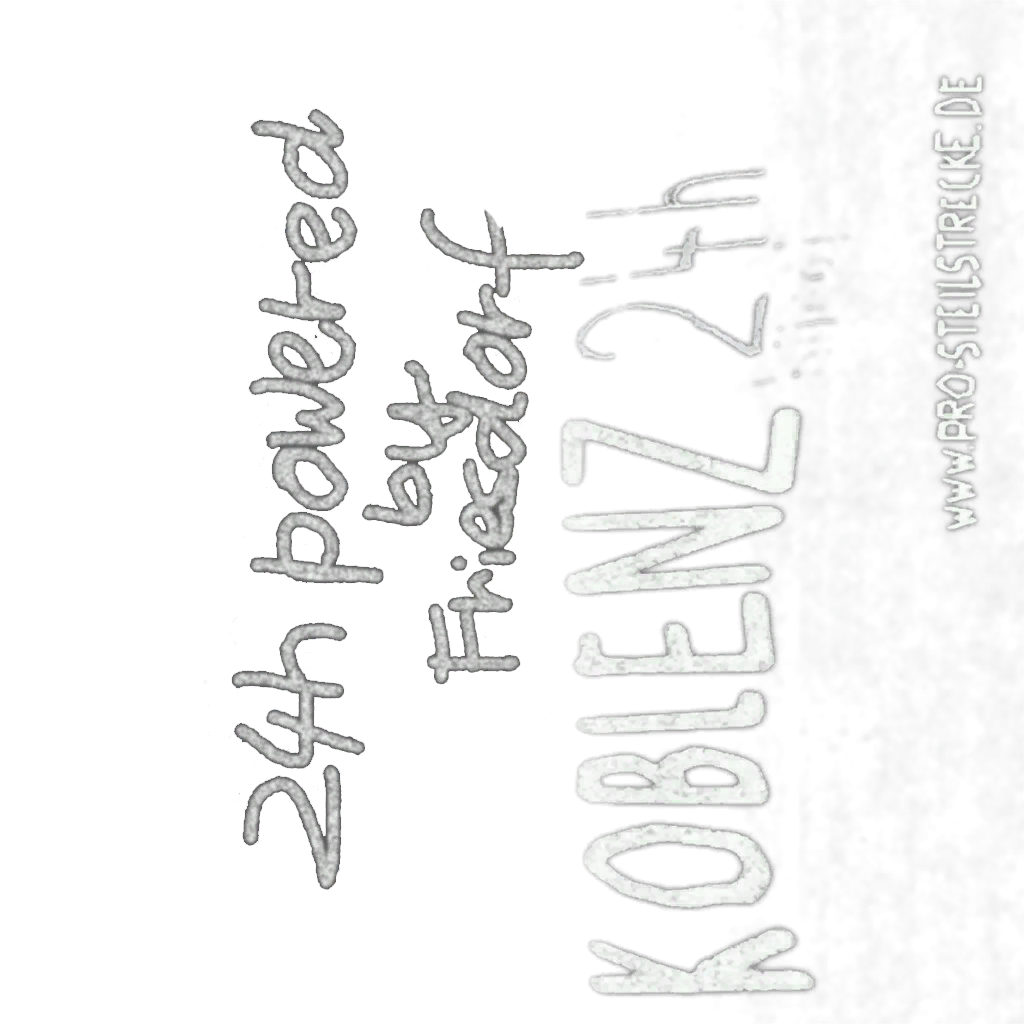 24h powered
by
Friesdorf
KOBLENZ 24h
WWW.PRO-STEILSTRECKE.DE